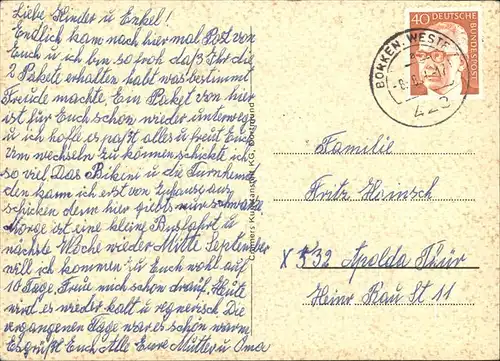 Liebe Kinder u Enkel!
Endlich kam nach hier mal Post von
Euch u ich bin so froh daß Ihr die
2 Pakete erhalten habt was bestimmt
Freude machte. Ein Paket von hier
ist für Euch schon wieder unterwegs
u ich hoffe es paßt alles u freut Euch.
Um wechseln zu können schickte ich
so viel Das Bikini u die Turnhemd
den kann ich erst von Zuhause aus
schicken denn hier giebts nur schwarze
Morge ist eine kleine Busfahrt u
nächste Woche wieder Mitte September
will ich kommen zu Euch wohl auf
10 Tage. Freue mich schon drauf. Heute
wird es wieder kalt u regnerisch Die
vergangenen Tage war es schön warm.
Es grüßt Euch Alle Eure Mutter u Oma
Cramers Kunstanstalt KG, Dortmund
40 DEUTSCHE BUNDESPOST
BORKEN, WESTF
Familie
Fritz
X 532 Apolda Thür
Heinr Rau St 11